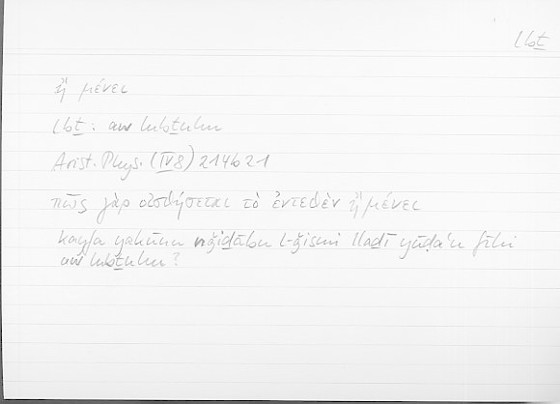 lbṯ
ἢ μένει
lbṯ: aw lubṯuhu
Arist. Phys. (IV8) 214b21
πῶς γὰρ οἰσθήσεται τὸ ἐντεθὲν ἢ μένει
kayfa yakūnu nǧiḏābu l-ǧismi llaḏī yūḍaʿu fīhi
aw lubṯuhu?